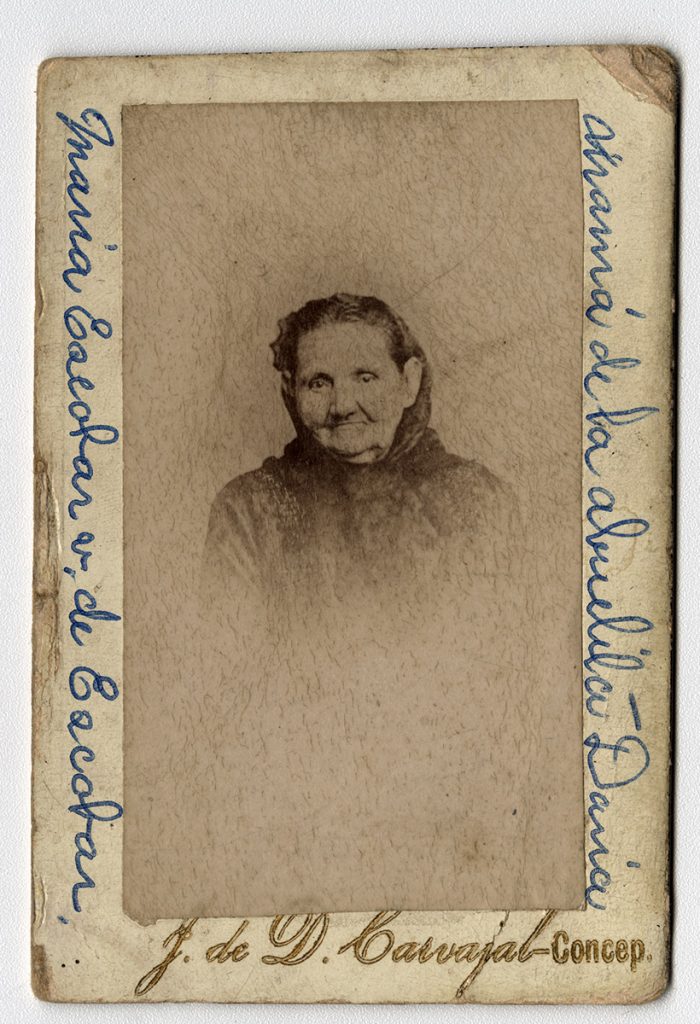 Maria Escobar v, de Escobar,
Mamá de la abuelita - Daria
J. de D. Carvajal - Concep.